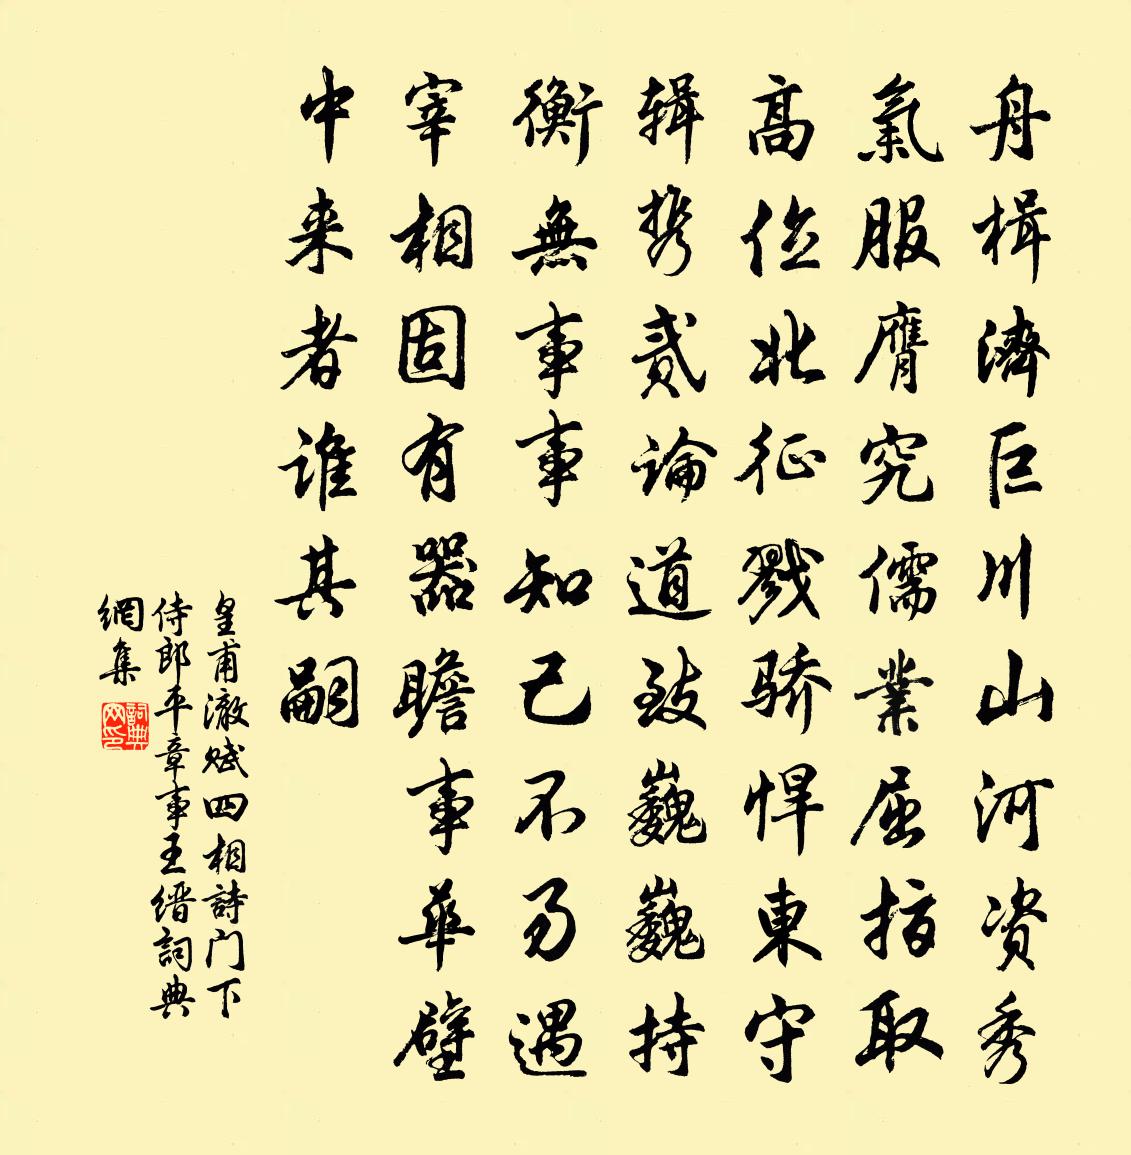 舟楫濟巨川山河资秀
氣服膺究儒業屈指取
髙位北征戮骄悍東守
辑携贰論道致巍巍持
衡無事事知己不易遇
宰相固有器瞻事華壁
中来者谁其嗣
皇甫澈赋四相詩门下
侍郎平章事王缙詞典
網集
詞典网印